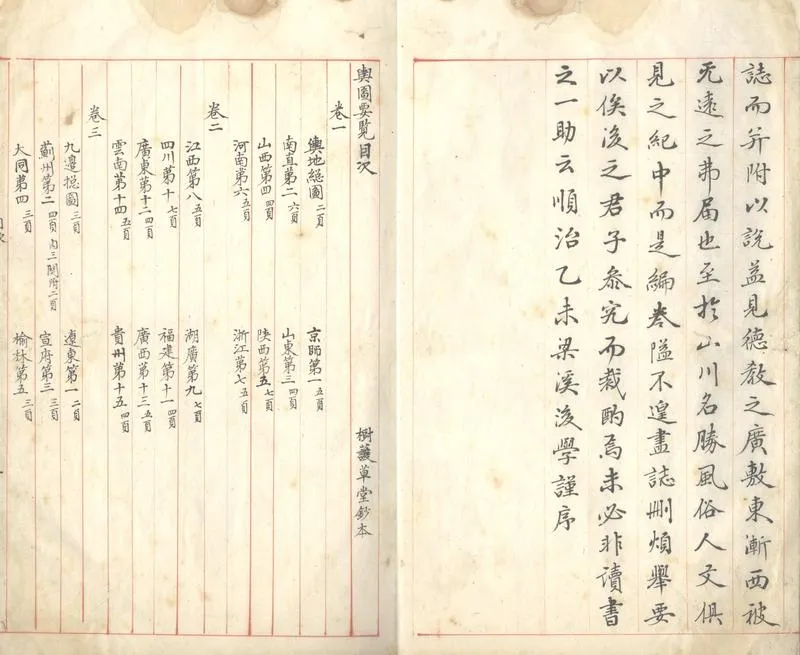 誌而并附以説益見德教之廣敷東漸西被
无遠之弗届也至於山川名勝風俗人文俱
見之紀中而是編卷隘不遑盡誌刪煩舉要
以俟後之君子叅究而裁酌焉未必非讀書
之一助云順治乙未梁溪後學謹序
輿圖要覽目次
樹護草堂鈔本
卷一
輿地總圖 二頁 京師第一 五頁
南直第二 六頁 山東第三 四頁
山西第四 四頁 陝西第五 七頁
河南第六 五頁 浙江第七 五頁
卷二
江西第八 五頁 湖廣第九 七頁
四川第十 七頁 福建第十一 四頁
廣東第十二 四頁 廣西第十三 五頁
雲南第十四 五頁 貴州第十五 四頁
卷三
九邊總圖 三頁 遼東第一 二頁
薊州第二 四頁 内三關附二頁 宣府第三 三頁
大同第四 三頁 榆林第五 三頁